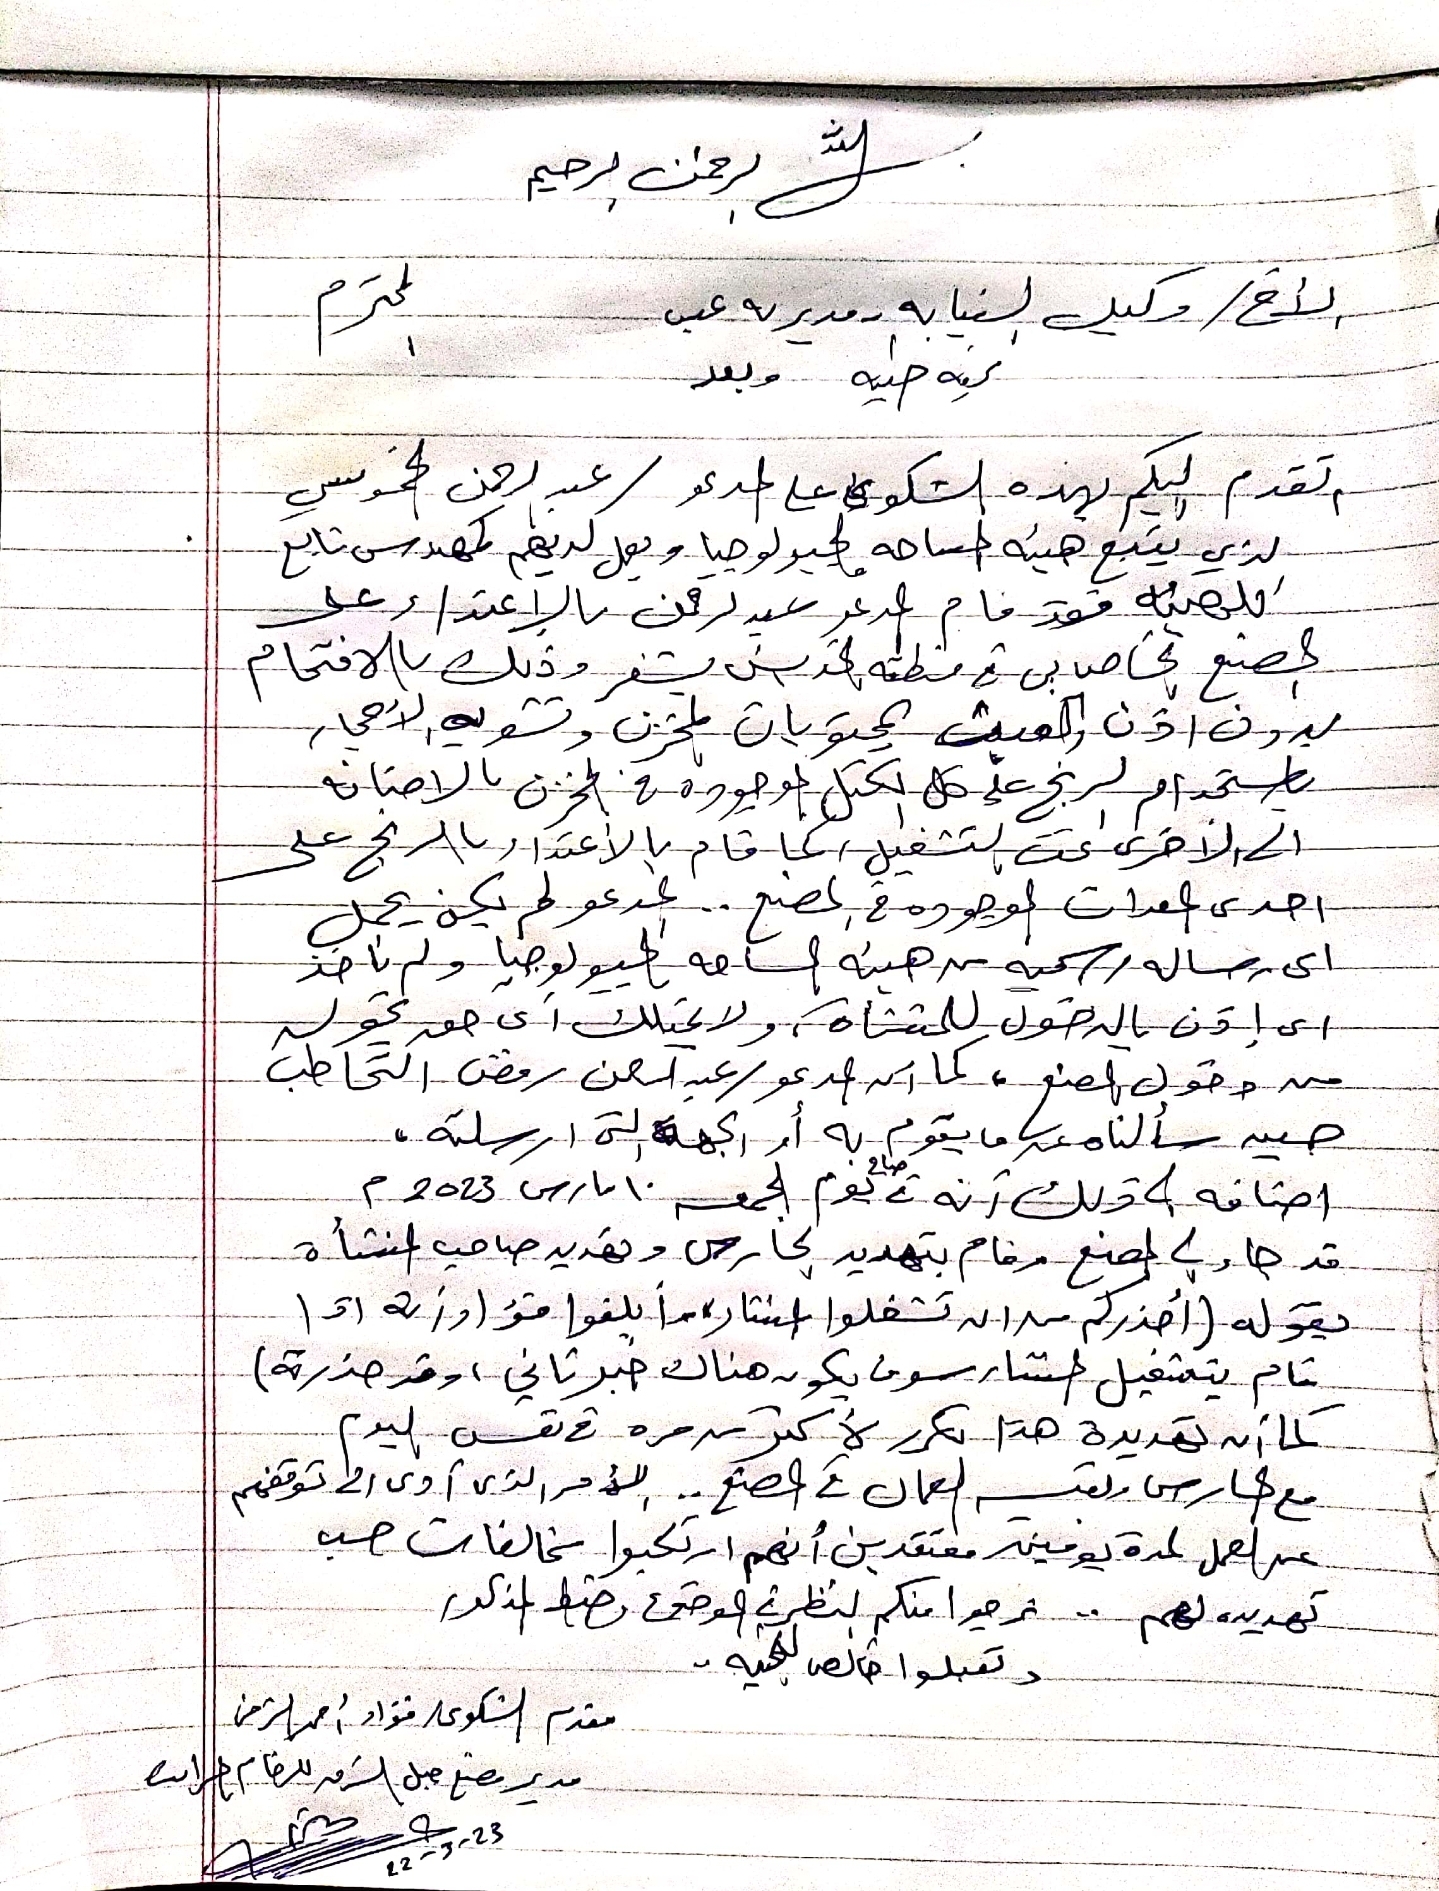 بسم الله الرحمن الرحيم
الأخ/ وكيل النيابه بمديريه عبس المحترم
تحيه طيبه وبعد
اتقدم اليكم بهذه الشكوى على المدعو / عبدالرحمن
الذي يتبع هيئه المساحه الجيولوجيا ويعمل لديهم كمهندس تابع
للهيئه فقد قام المدعو عبدالرحمن بالإعتداء على
المصنع الخاص بي في منطقه وذلك بالاقتحام
بدون اذن والعبث بمحتويات المخزن وتشويه الأحجار
باستخدام البخ على كل الكتل الموجوده في المخزن بالاضافه
الى الأخرى تحت التشغيل، كما قام بالأعتداء بالبخ على
احدى المعدات الموجوده في المصنع .. المدعو لم يكن يحمل
اى رساله رسميه من هيئه المساحه الجيولوجيا ولم ياخذ
اى إذن بالدخول للمنشأة، ولا يمتلك أى حق يخوله
من دخول المصنع، كما ان المدعو/عبدالرحمن رفض التخاطب
حين سألناه عن ما يقوم به أو الجهة التى ارسلته،
اضافه الى ذلك أنه في صباح يوم الجمعه ١٠ مارس 2023 م
قد جاء الى المصنع وقام بتهديد الحارس وتهديد صاحب المنشأة
بقوله (أحذركم من ان تشغلوا المنشار، وأبلغوا فؤاد أنه اذا
قام بتشغيل المنشار سوف يكون هناك خبر ثاني، وقد حذرته)
كما أن تهديدة هذا تكرر لأكثر من مره في نفس اليوم
مع الحارس وبقيه العمال في المصنع .. الأمر الذى أدى الى توقفهم
عن العمل لمدة يومين معتقدين أنهم ارتكبوا مخالفات حسب
تهديده لهم .. نرجوا منكم النظر في الموضوع وضبط المذكور
وتقبلوا خالص التحيه ..
مقدم الشكوى/ فؤاد أحمد
مدير مصنع جبل الشرق للرخام
22-3-23